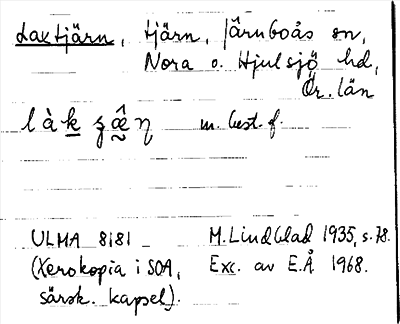 Laxtjärn, tjärn, Järnboås sn,
Nora o. Hjulsjö hd,
Ör. län
m. best. f.
ULMA 8181 M. Lindblad 1935, s. 78.
(Xerokopia i SOA, Exc. av E.Å 1968.
särsk. kapsel).